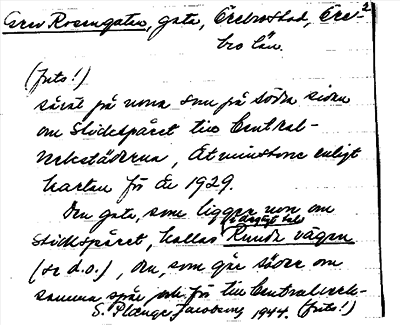 Grev Rosengatan, gata, Örebro stad, Öre-2
bro län.
(Jnts!)
såväl på norra som på södra sidan
om Stickspåret till Central-
verkstäderna, åtminstone enligt
kartan för år 1929.
Den gata, som ligger norr om
i dagligt tal
Stickspåret, kallas Runda vägen
(se d.o.), den, som går söder om
samma spår och för till Centralverk-
S. Plænge Jacobson 1944. (Jnts!)